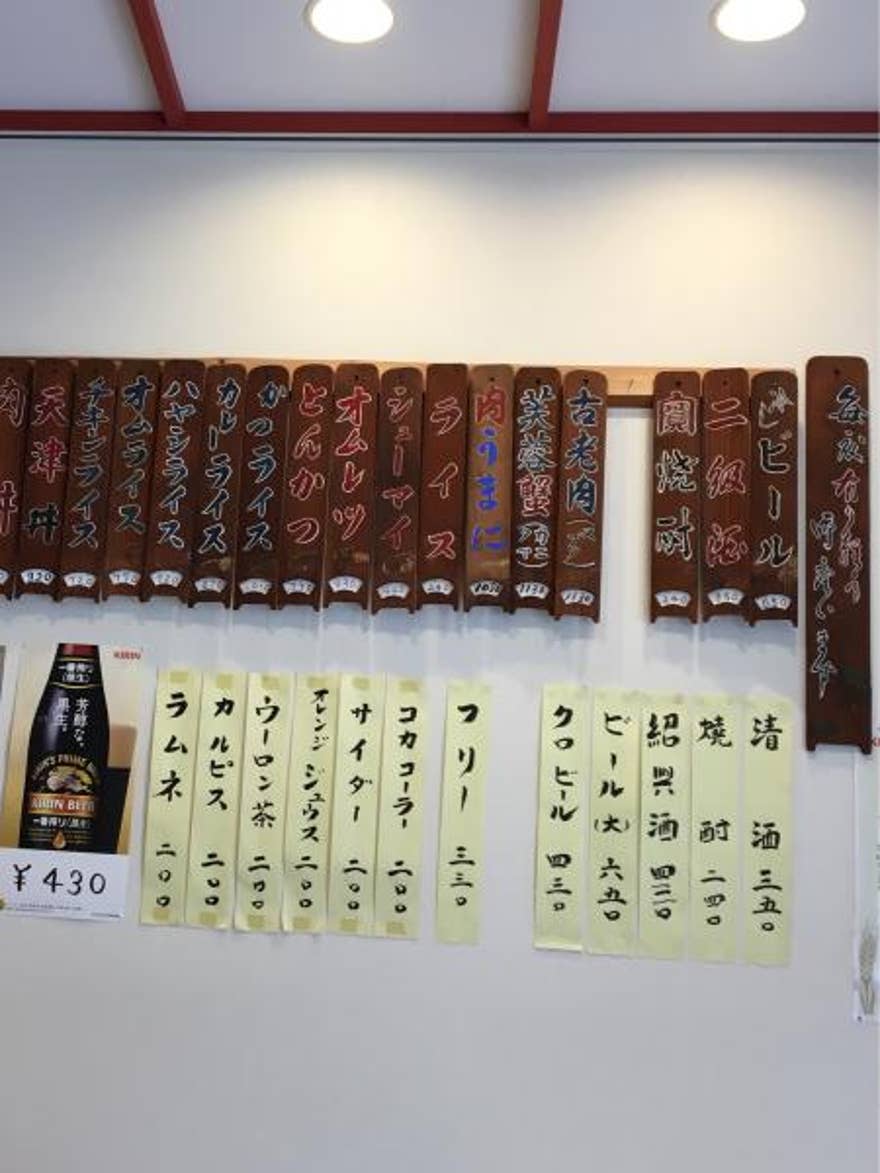 毎度有り難う
御座います
ビール
650
二級酒
350
寶焼酎
240
古老肉(スブタ)
1130
芙蓉蟹(カニ玉)
1130
肉うまに
1030
ライス
シューマイ
オムレツ
とんかつ
カツライス
カレーライス
ハヤシライス
オムライス
チキンライス
天津丼
920
肉丼
清酒 三五〇
焼酎 二四〇
紹興酒 四三〇
ビール(大) 六五〇
クロビール 四三〇
フリー 三三〇
コカコーラー 二〇〇
サイダー 二〇〇
オレンジジュウス 二〇〇
ウーロン茶 二〇〇
カルピス 二〇〇
ラムネ 二〇〇
KIRIN
一番搾り(黒生)
芳醇な、
黒生。
KIRIN BEER
一番搾り(黒生)
¥430